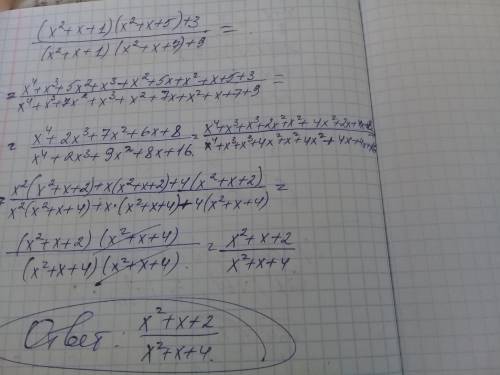 (x²+x+1)(x²+x+5)+3 / (x²+x+1)(x²+x+7)+9 =
= x⁴+x³+5x²+x³+x²+5x+x²+x+5+3 / x⁴+x³+7x²+x³+x²+7x+x²+x+7+9 =
= x⁴+2x³+7x²+6x+8 / x⁴+2x³+9x²+8x+16 = x⁴+x³+x³+2x²+x²+4x²+2x+4x+8 / x⁴+x³+x³+4x²+x²+4x²+4x+4x+16
= x²(x²+x+2)+x(x²+x+2)+4(x²+x+2) / x²(x²+x+4)+x·(x²+x+4)+4(x²+x+4) =
(x²+x+2)(x²+x+4) / (x²+x+4)(x²+x+4) = x²+x+2 / x²+x+4
Ответ: x²+x+2 / x²+x+4.